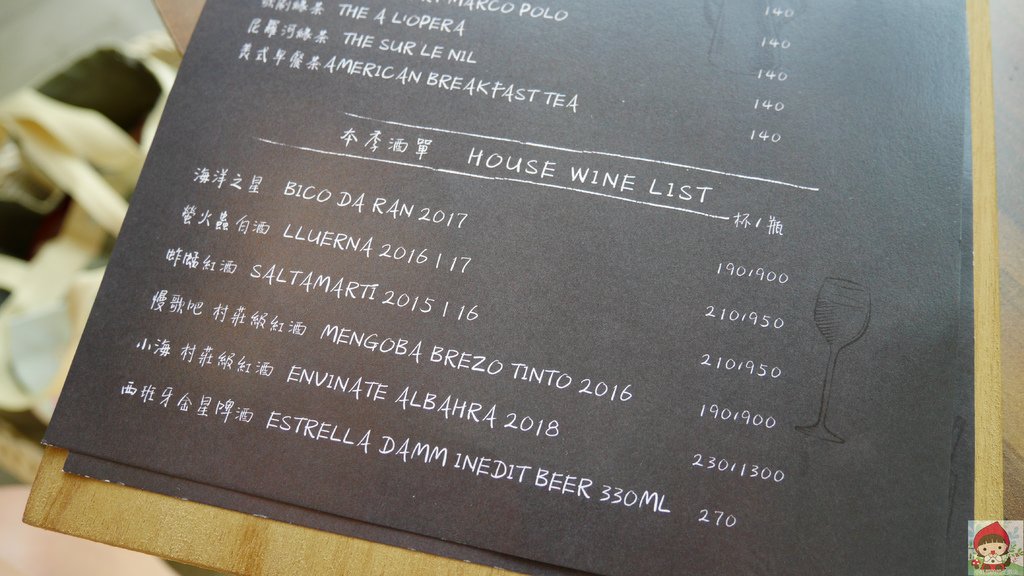 MARCO POLO 140
歌劇綠茶 THE A L'OPERA 140
尼羅河綠茶 THE SUR LE NIL 140
美式早餐茶 AMERICAN BREAKFAST TEA 140
140
本季酒單 HOUSE WINE LIST
杯/瓶
海洋之星 BICO DA RAN 2017 190/900
螢火蟲白酒 LLUERNA 2016 | 17 210/950
蚱蜢紅酒 SALTAMARTÍ 2015 | 16 210/950
慢歌吧 村莊級紅酒 MENGOBA BREZO TINTO 2016 190/900
小海 村莊級紅酒 ENVINATE ALBAHRA 2018 230/1300
西班牙金星啤酒 ESTRELLA DAMM INEDIT BEER 330ML 270